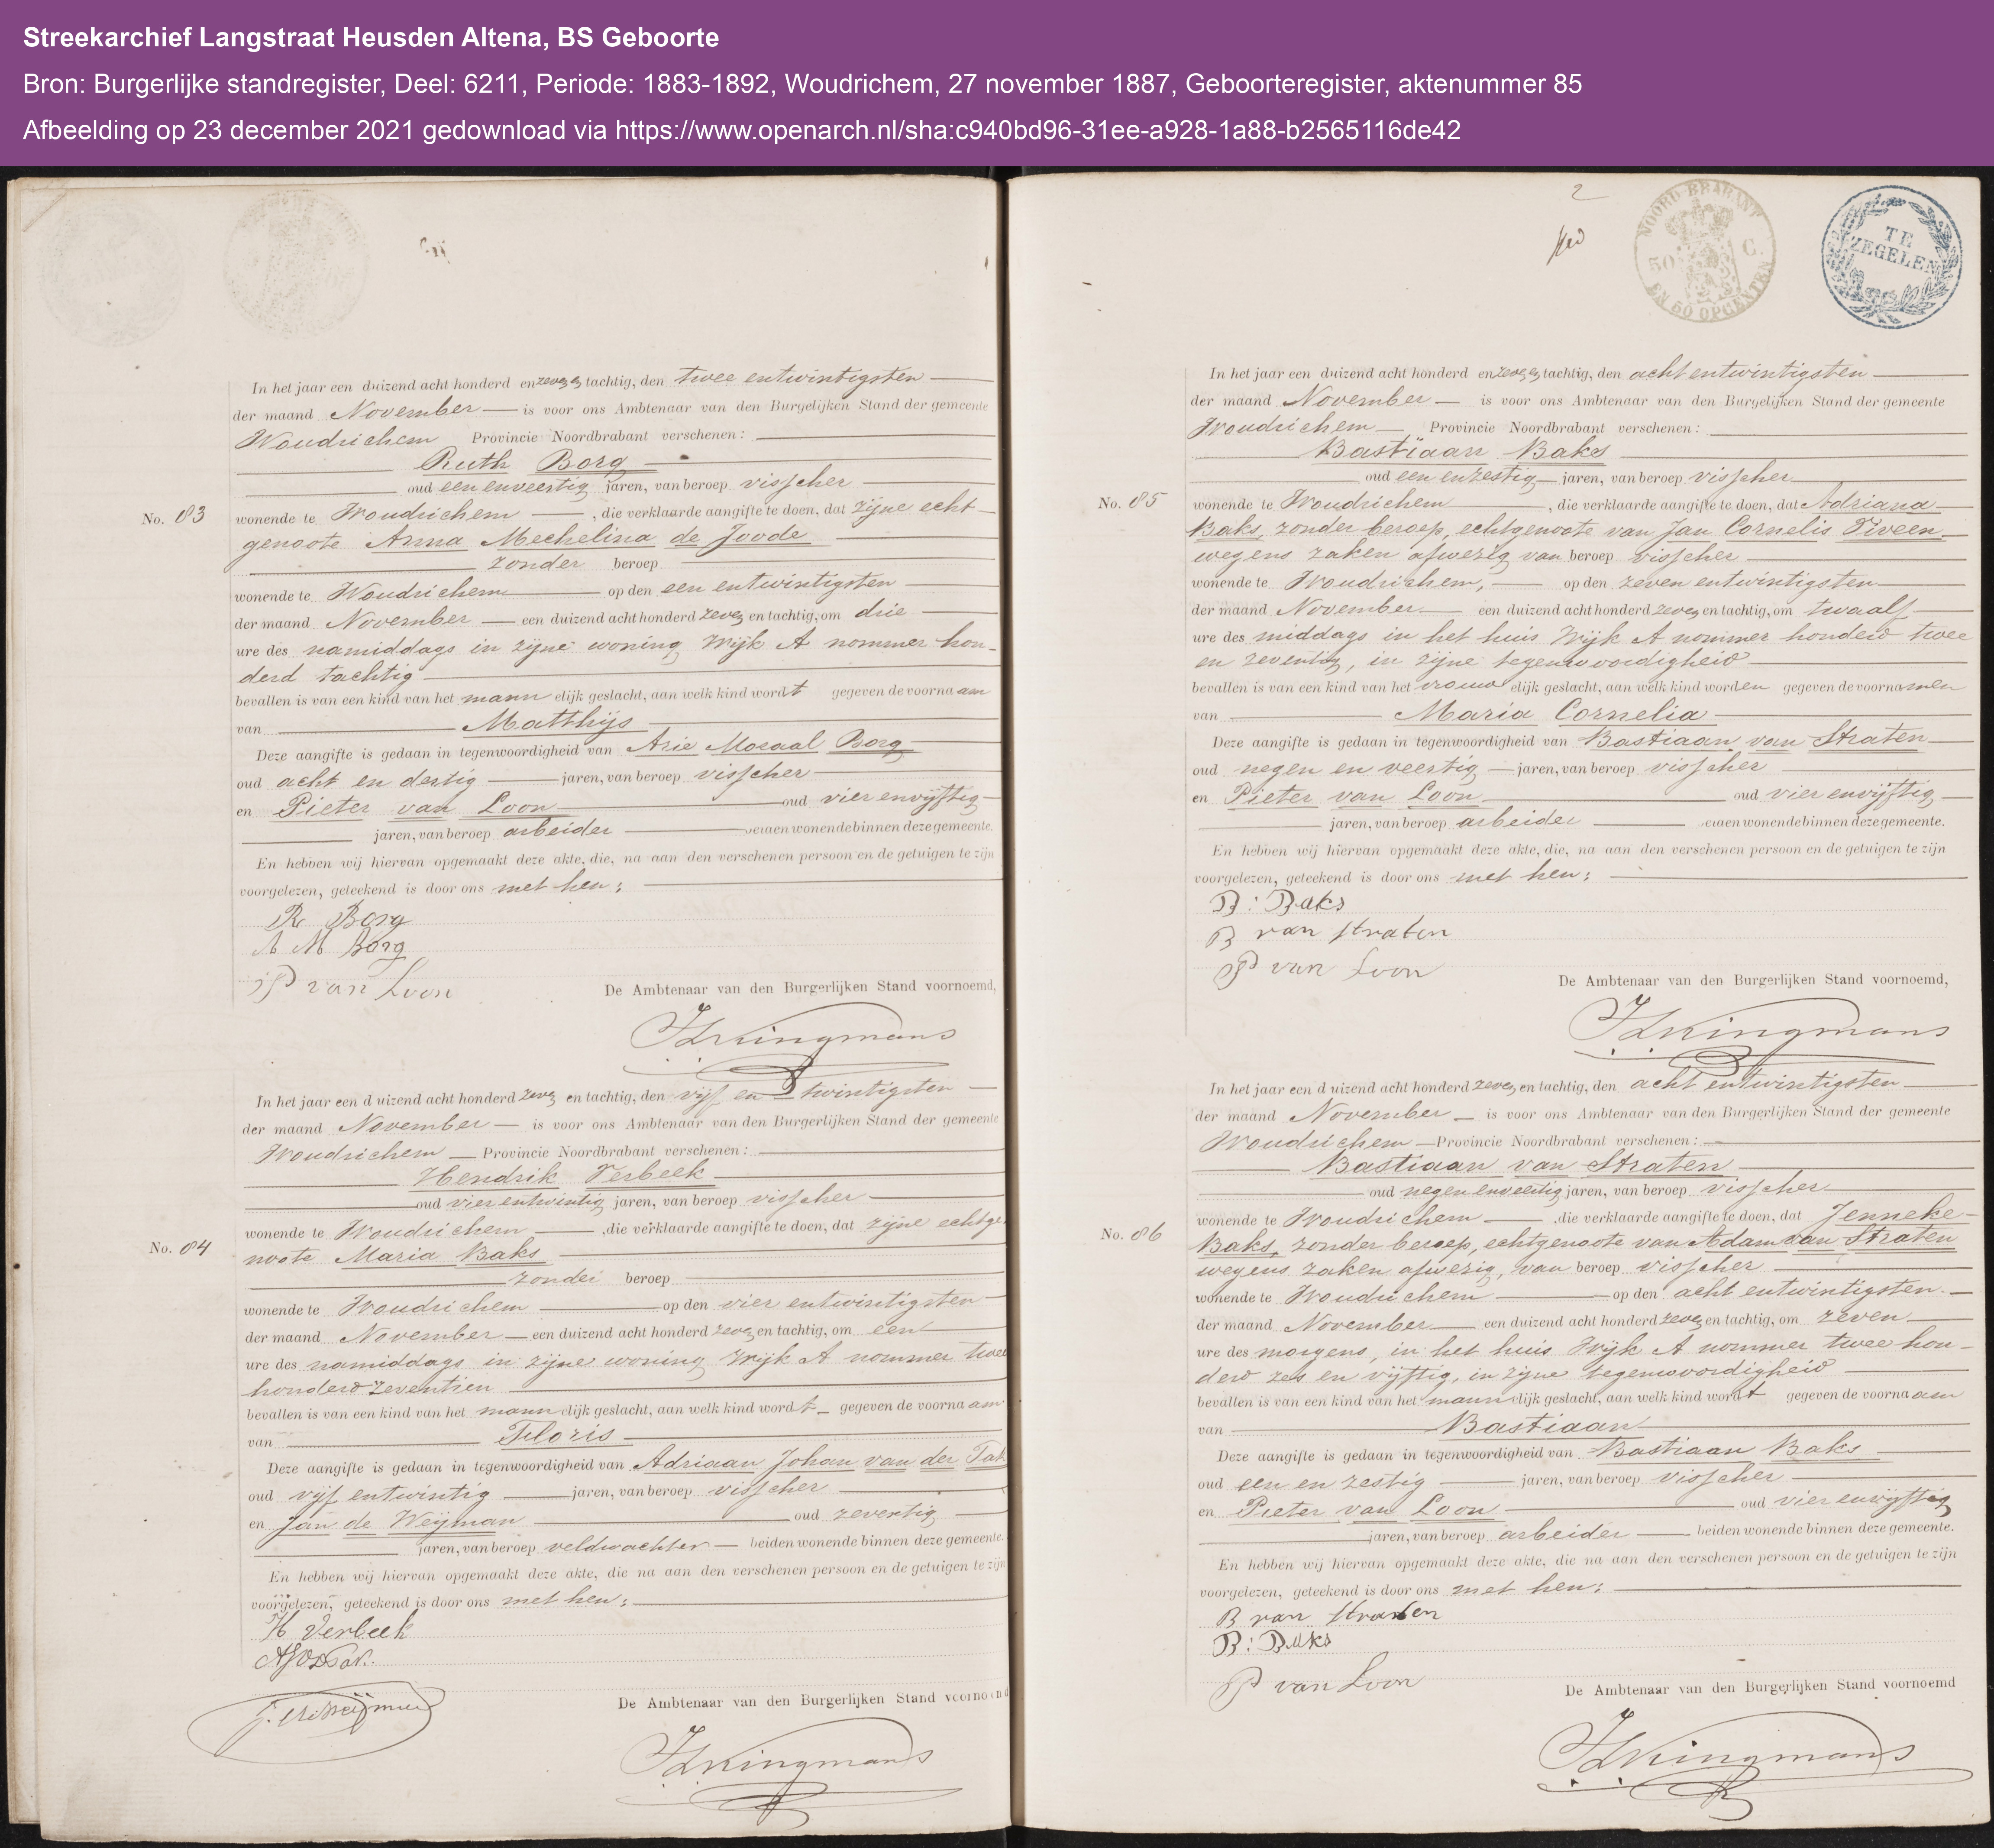 Streekarchief Langstraat Heusden Altena, BS Geboorte
Bron: Burgerlijke standregister, Deel: 6211, Periode: 1883-1892, Woudrichem, 27 november 1887, Geboorteregister, aktenummer 85
Afbeelding op 23 december 2021 gedownload via https://www.openarch.nl/sha:c940bd96-31ee-a928-1a88-b2565116de42
In het jaar een duizend acht honderd en zeven en tachtig, den twee entwintigsten
der maand November is voor ons Ambtenaar van den Burgelijken Stand der gemeente
Woudrichem Provincie Noordbrabant verschenen:
Ruth Borg
oud een enveertig jaren, van beroep visscher
No. 83 wonende te Woudrichem, die verklaarde aangifte te doen, dat zijne echt-
genoote Anna Mechelina de Joode
zonder beroep
wonende te Woudrichem op den een entwintigsten
der maand November een duizend acht honderd zeven en tachtig, om drie
ure des namiddags in zijne woning Wijk A nommer hon-
derd tachtig
bevallen is van een kind van het mannelijk geslacht, aan welk kind wordt gegeven de voornaam
van Matthijs
Deze aangifte is gedaan in tegenwoordigheid van Arie Moraal Borg
oud acht en dertig jaren, van beroep visscher
en Pieter van Loon oud vier envijftig
jaren, van beroep arbeider beiden wonende binnen deze gemeente.
En hebben wij hiervan opgemaakt deze akte, die, na aan den verschenen persoon en de getuigen te zijn
voorgelezen, geteekend is door ons met hen;
R Borg
A M Borg
P van Loon
De Ambtenaar van den Burgerlijken Stand voornoemd,
Kingmans
In het jaar een duizend acht honderd zeven en tachtig, den vijf en twintigsten
der maand November is voor ons Ambtenaar van den Burgerlijken Stand der gemeente
Woudrichem Provincie Noordbrabant verschenen:
Hendrik Verbeek
oud vier entwintig jaren, van beroep visscher
wonende te Woudrichem, die verklaarde aangifte te doen, dat zijne echtge
No. 84 noote Maria Baks
zonder beroep
wonende te Woudrichem op den vier entwintigsten
der maand November een duizend acht honderd zeven en tachtig, om een
ure des namiddags in zijne woning Wijk A nommer twee
honderd zeventien
bevallen is van een kind van het mannelijk geslacht, aan welk kind wordt gegeven de voornaam
van Floris
Deze aangifte is gedaan in tegenwoordigheid van Adriaan Johan van der Pak
oud vijf entwintig jaren, van beroep visscher
en Jan de Weijman oud zeventig
jaren, van beroep veldwachter beiden wonende binnen deze gemeente.
En hebben wij hiervan opgemaakt deze akte, die na aan den verschenen persoon en de getuigen te zijn
voorgelezen, geteekend is door ons met hen;
H Verbeek
De Ambtenaar van den Burgerlijken Stand voornoemd
Kingmans
2
NOORD BRABANT
50 C.
EN 50 OPCENTEN
TE ZEGELEN
In het jaar een duizend acht honderd en zeven en tachtig, den acht entwintigsten
der maand November is voor ons Ambtenaar van den Burgelijken Stand der gemeente
Woudrichem Provincie Noordbrabant verschenen:
Bastiaan Baks
oud een enzestig jaren, van beroep visscher
No. 85 wonende te Woudrichem, die verklaarde aangifte te doen, dat Adriana
Baks, zonder beroep, echtgenoote van Jan Cornelis Viveen
wegens zaken afwezig van beroep visscher
wonende te Woudrichem, op den zeven entwintigsten
der maand November een duizend acht honderd zeven en tachtig, om twaalf
ure des middags in het huis Wijk A nommer honderd twee
en zeventig, in zijne tegenwoordigheid
bevallen is van een kind van het vrouwelijk geslacht, aan welk kind worden gegeven de voornamen
van Maria Cornelia
Deze aangifte is gedaan in tegenwoordigheid van Bastiaan van Straten
oud negen en veertig jaren, van beroep visscher
en Pieter van Loon oud vier envijftig
jaren, van beroep arbeider beiden wonende binnen deze gemeente.
En hebben wij hiervan opgemaakt deze akte, die, na aan den verschenen persoon en de getuigen te zijn
voorgelezen, geteekend is door ons met hen;
B: Baks
B van Straten
P van Loon
De Ambtenaar van den Burgerlijken Stand voornoemd,
Kingmans
In het jaar een duizend acht honderd zeven en tachtig, den acht entwintigsten
der maand November is voor ons Ambtenaar van den Burgerlijken Stand der gemeente
Woudrichem Provincie Noordbrabant verschenen:
Bastiaan van Straten
oud negen enveertig jaren, van beroep visscher
wonende te Woudrichem, die verklaarde aangifte te doen, dat Jenneke
No. 86 Baks, zonder beroep, echtgenoote van Adam van Straten
wegens zaken afwezig, van beroep visscher
wonende te Woudrichem op den acht entwintigsten
der maand November een duizend acht honderd zeven en tachtig, om zeven
ure des morgens, in het huis Wijk A nommer twee hon-
derd zes en vijftig, in zijne tegenwoordigheid
bevallen is van een kind van het mannelijk geslacht, aan welk kind wordt gegeven de voornaam
van Bastiaan
Deze aangifte is gedaan in tegenwoordigheid van Bastiaan Baks
oud een en zestig jaren, van beroep visscher
en Pieter van Loon oud vier envijftig
jaren, van beroep arbeider beiden wonende binnen deze gemeente.
En hebben wij hiervan opgemaakt deze akte, die na aan den verschenen persoon en de getuigen te zijn
voorgelezen, geteekend is door ons met hen;
B van Straten
B: Baks
P van Loon
De Ambtenaar van den Burgerlijken Stand voornoemd
Kingmans